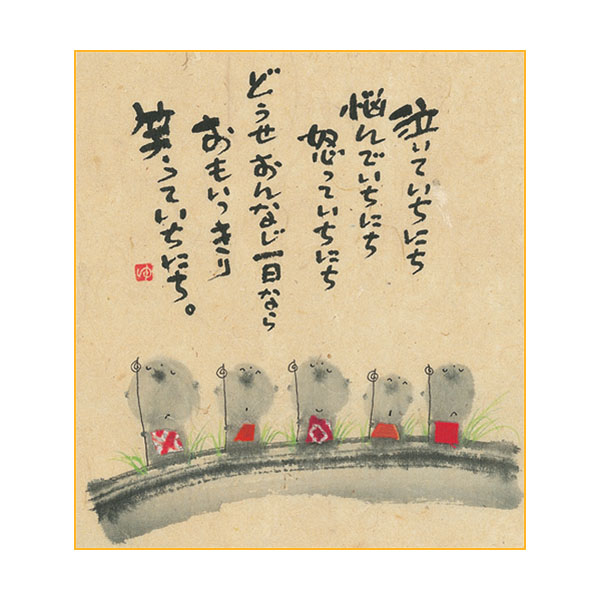 泣いていちにち
悩んでいちにち
怒っていちにち
どうせおんなじ一日なら
おもいっきり
笑っていちにち。
ゆ